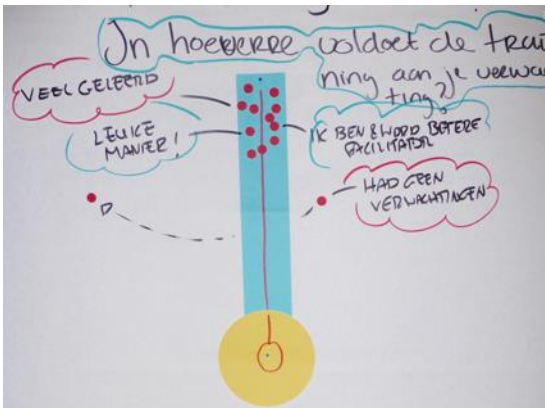 In hoeverre voldoet de trai
ning aan je verwac
ting?
VEEL GELEERD
LEUKE
MANIER!
IK BEN & WORD BETERE
FACILITATOR
HAD GEEN
VERWACHTINGEN